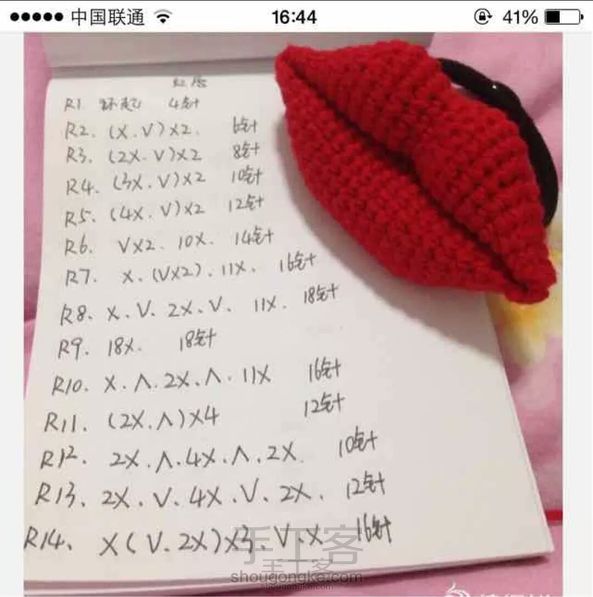 中国联通 16:44 41%
红唇
R1. 环起 4针
R2. (X.V)X2. 6针
R3. (2X.V)X2 8针
R4. (3X.V)X2 10针
R5. (4X.V)X2 12针
R6. VX2. 10X. 14针
R7. X.(VX2).11X. 16针
R8. X.V.2X.V. 11X. 18针
R9. 18X. 18针
R10. X.Λ.2X.Λ.11X 16针
R11. (2X.Λ)X4 12针
R12. 2X.Λ.4X.Λ.2X. 10针
R13. 2X.V.4X.V.2X. 12针
R14. X(V.2X)X3.V.X 16针
手工客
手工客
shougongke.com